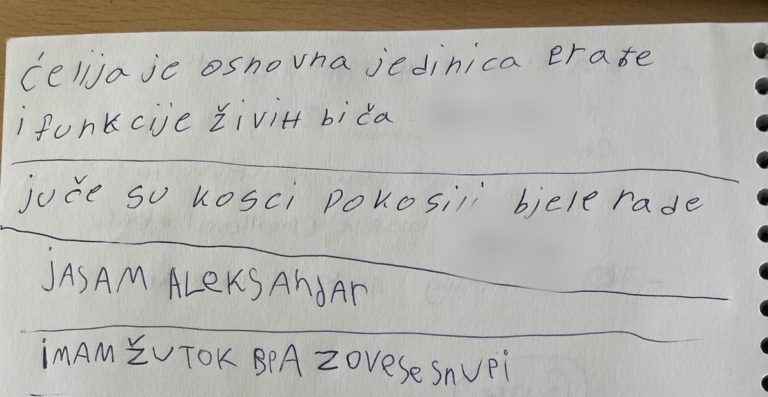 ćelija je osnovna jedinica erađe
i funkcije živih biča
juče su kosci pokosili bjele rade
JASAM ALEKSAndAr
iMAM ŽUTOK BPA ZOVESE SnUPi